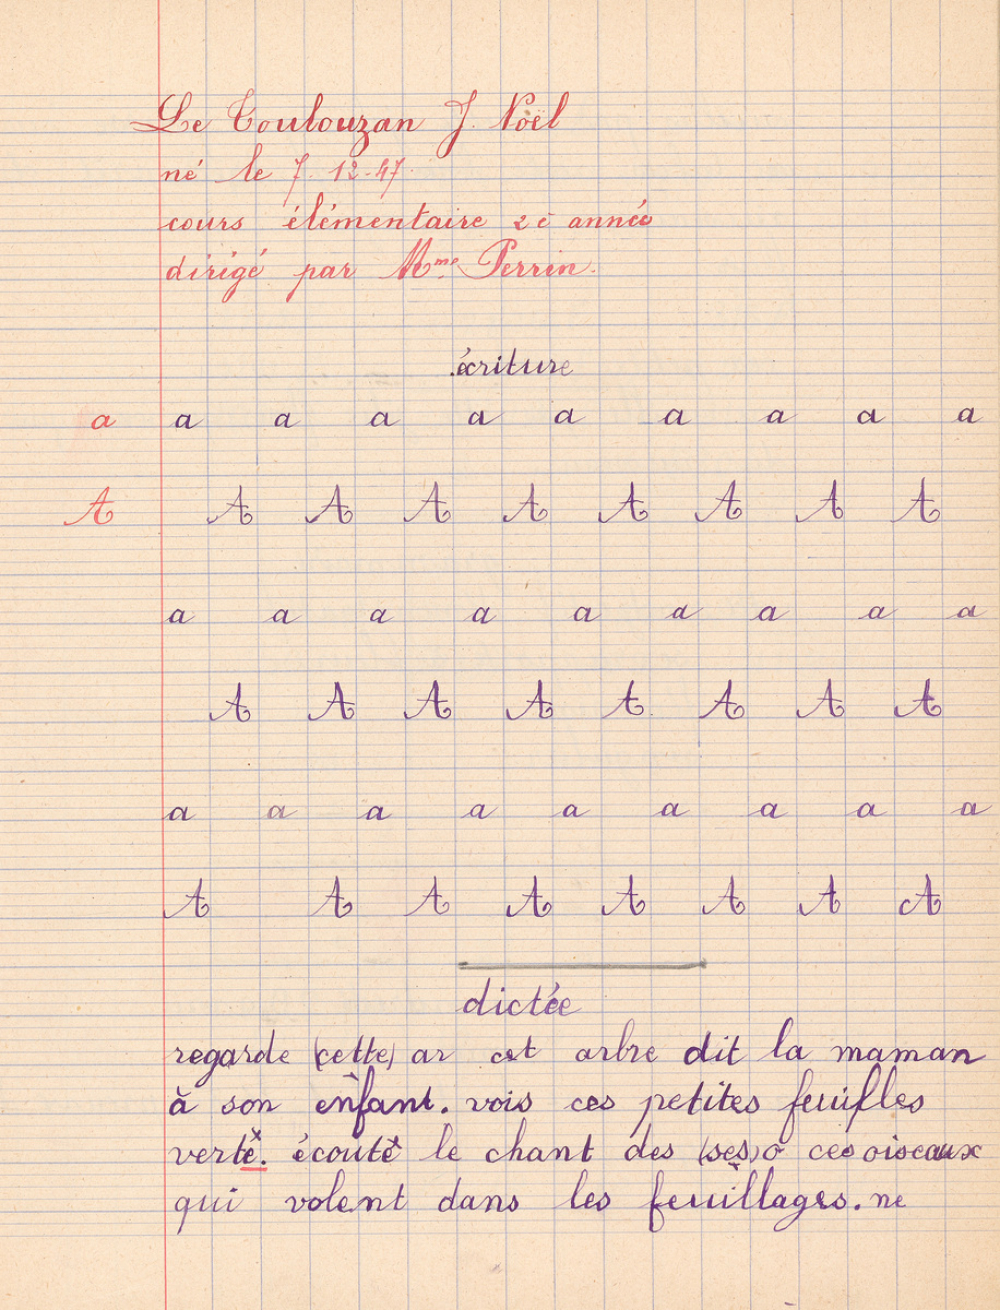 Le Toulouzan J. Noël
né le 7-12-47.
cours élémentaire 2è année
dirigé par Mme Perrin.
écriture
a a a a a a a a a a
A A A A A A A A A
a a a a a a a a a
A A A A A A A A
a a a a a a a a a
A A A A A A A A
dictée
regarde (cette) ar cet arbre dit la maman
à son enfant. vois ces petites feuilles
verte. écoute le chant des (ses) o ces oiseaux
qui volent dans les feuillages. ne